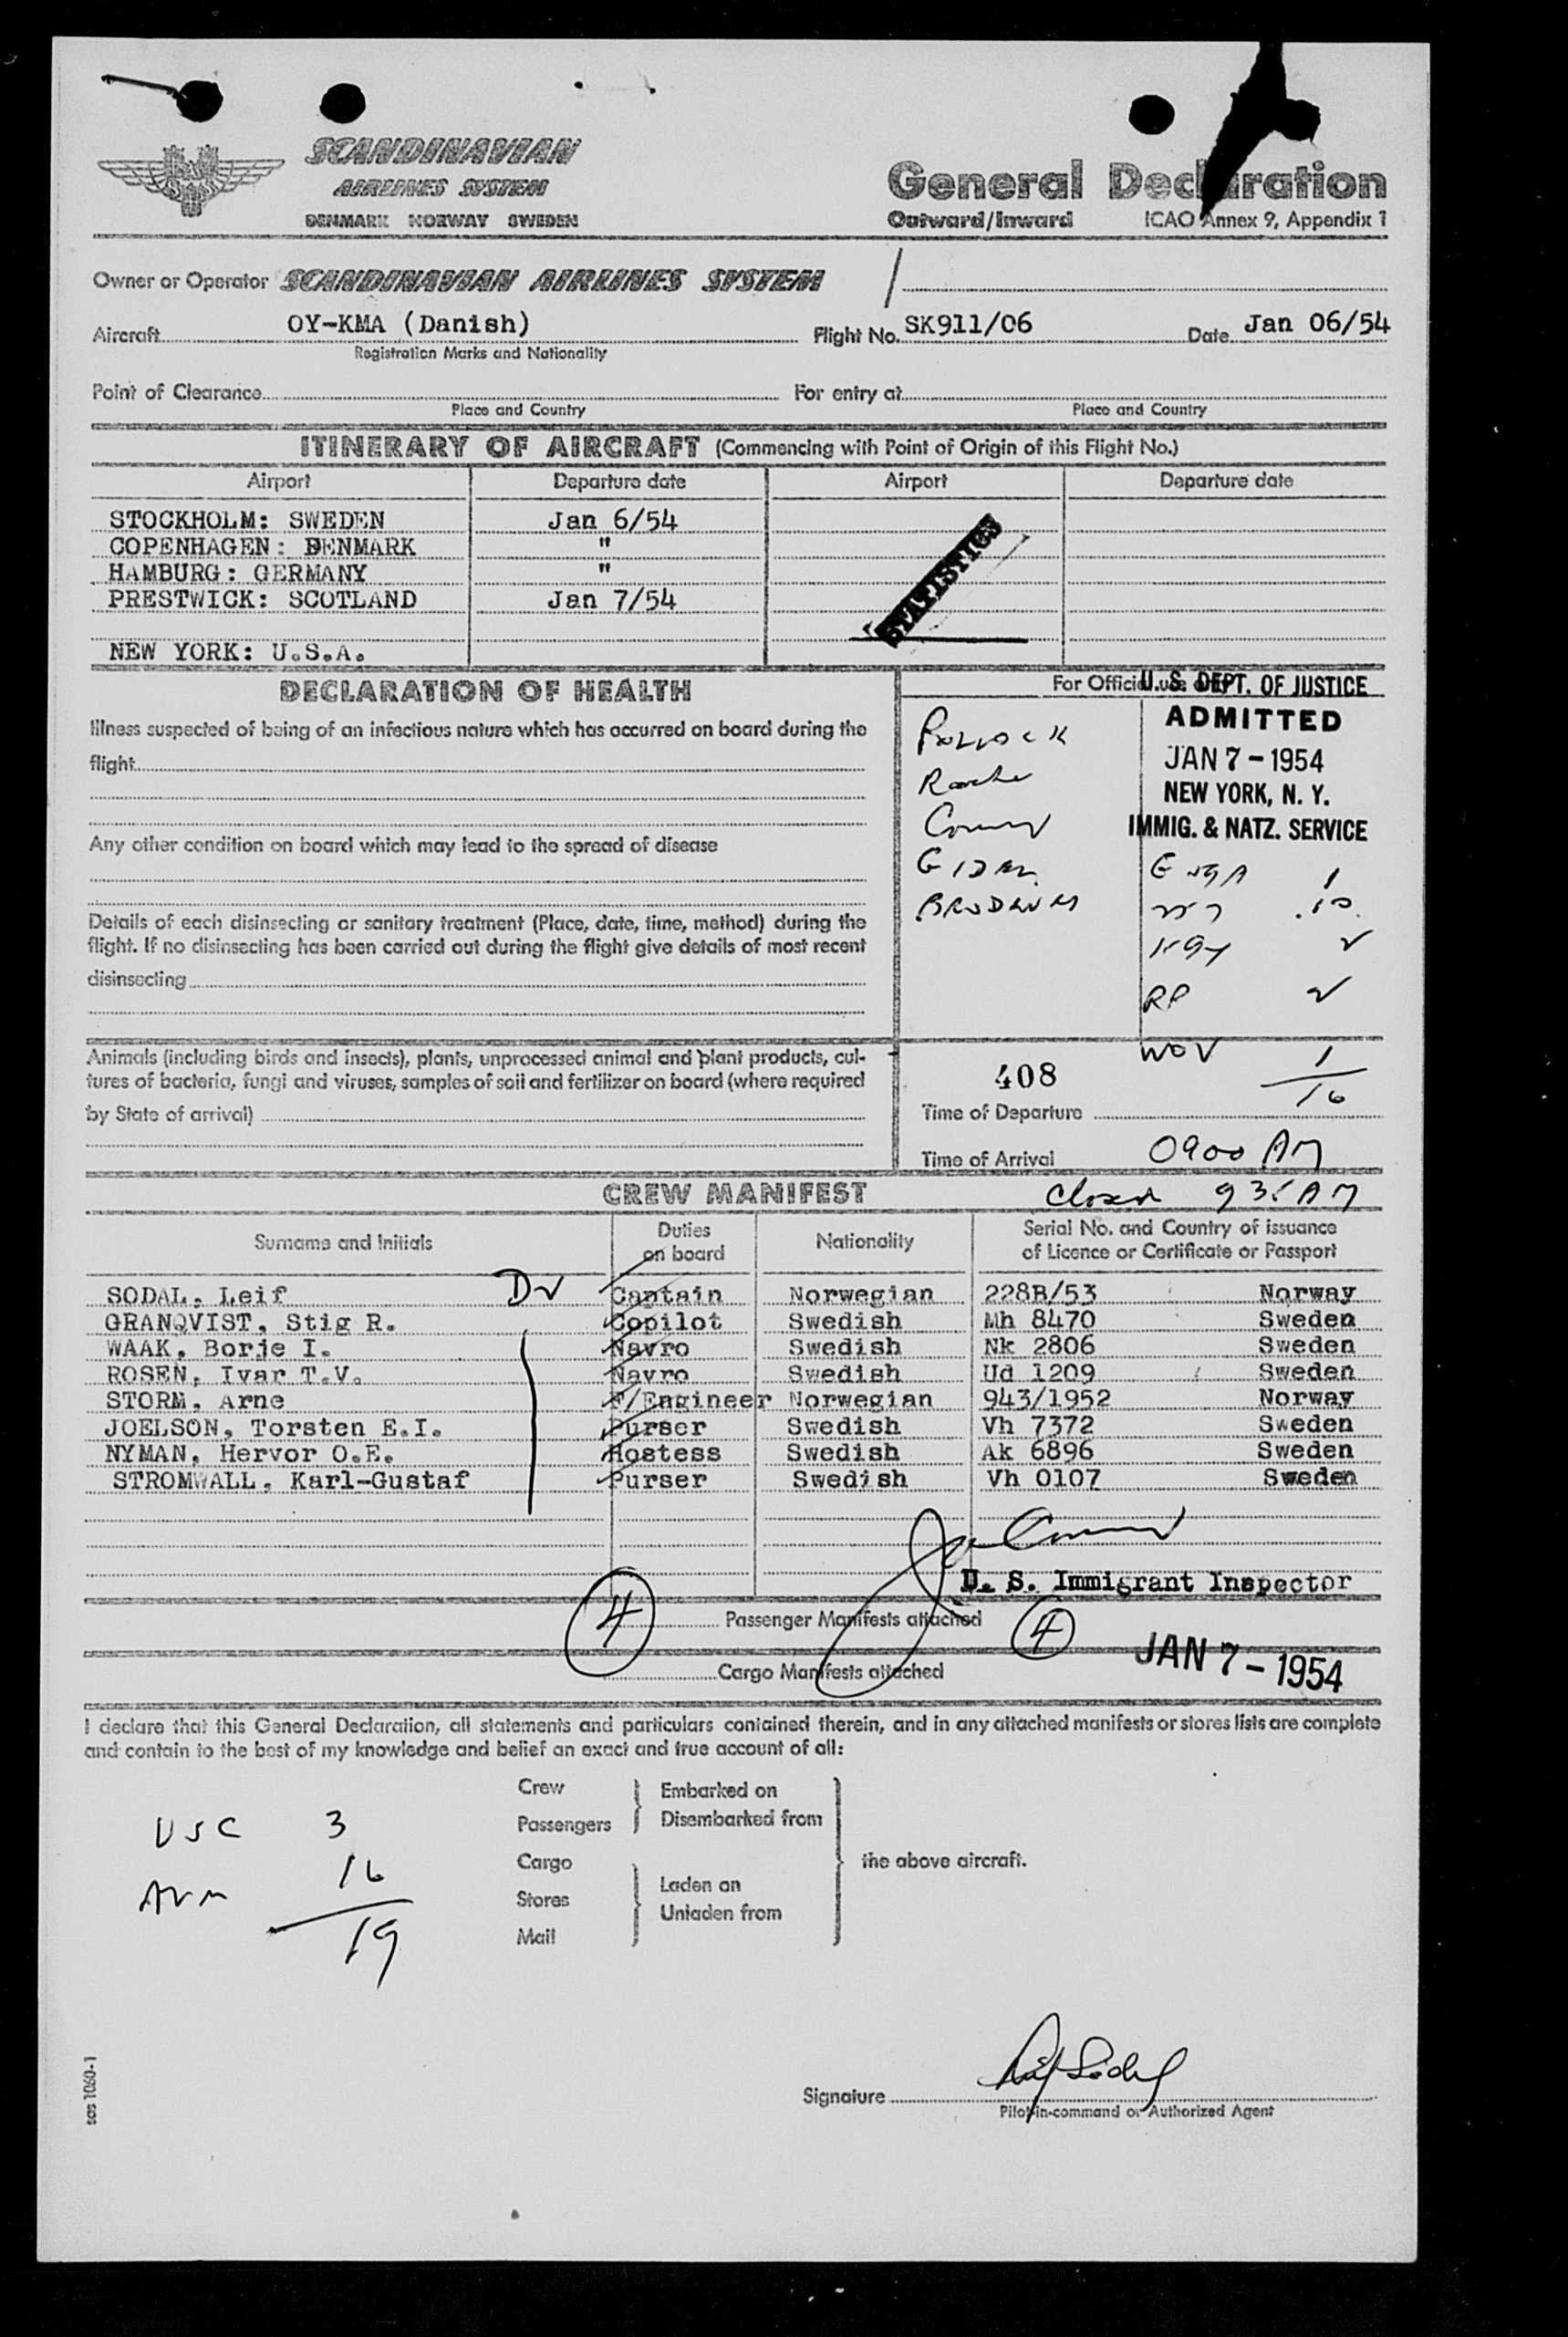 SCANDINAVIAN
AIRLINES SYSTEM
DENMARK NORWAY SWEDEN
General Declaration
Outward/Inward ICAO Annex 9, Appendix 1
Owner or Operator SCANDINAVIAN AIRLINES SYSTEM
Aircraft OY-KMA (Danish) Flight No. SK911/06 Date Jan 06/54
Registration Marks and Nationality
Point of Clearance For entry at
Place and Country Place and Country
ITINERARY OF AIRCRAFT (Commencing with Point of Origin of this Flight No.)
Airport Departure date Airport Departure date
STOCKHOLM: SWEDEN Jan 6/54
COPENHAGEN: DENMARK "
HAMBURG: GERMANY "
PRESTWICK: SCOTLAND Jan 7/54
NEW YORK: U.S.A.
STATISTICS
DECLARATION OF HEALTH
Illness suspected of being of an infectious nature which has occurred on board during the
flight
Any other condition on board which may lead to the spread of disease
Details of each disinsecting or sanitary treatment (Place, date, time, method) during the
flight. If no disinsecting has been carried out during the flight give details of most recent
disinsecting
Animals (including birds and insects), plants, unprocessed animal and plant products, cul-
tures of bacteria, fungi and viruses, samples of soil and fertilizer on board (where required
by State of arrival)
For Official use
U. S. DEPT. OF JUSTICE
ADMITTED
JAN 7 - 1954
NEW YORK, N. Y.
IMMIG. & NATZ. SERVICE
POLLOCK
RP
WOV 1
16
408
Time of Departure
Time of Arrival 0900 AM
Closed 935 AM
CREW MANIFEST
Surname and Initials Duties on board Nationality Serial No. and Country of issuance of Licence or Certificate or Passport
SODAL, Leif Captain Norwegian 228B/53 Norway
GRANQVIST, Stig R. Copilot Swedish Mh 8470 Sweden
WAAK, Borje I. Navro Swedish Nk 2806 Sweden
ROSEN, Ivar T.V. Navro Swedish Ud 1209 Sweden
STORM, Arne F/Engineer Norwegian 943/1952 Norway
JOELSON, Torsten E.I. Purser Swedish Vh 7372 Sweden
NYMAN, Hervor O.E. Hostess Swedish Ak 6896 Sweden
STROMWALL, Karl-Gustaf Purser Swedish Vh 0107 Sweden
U. S. Immigrant Inspector
4 Passenger Manifests attached 4
Cargo Manifests attached
JAN 7 - 1954
I declare that this General Declaration, all statements and particulars contained therein, and in any attached manifests or stores lists are complete
and contain to the best of my knowledge and belief an exact and true account of all:
Crew
Passengers
Embarked on
Disembarked from
Cargo
Stores
Mail
Laden on
Unladen from
the above aircraft.
USC 3
16
19
Signature Leif Sodal
Pilot-in-command or Authorized Agent
sas 1060-1